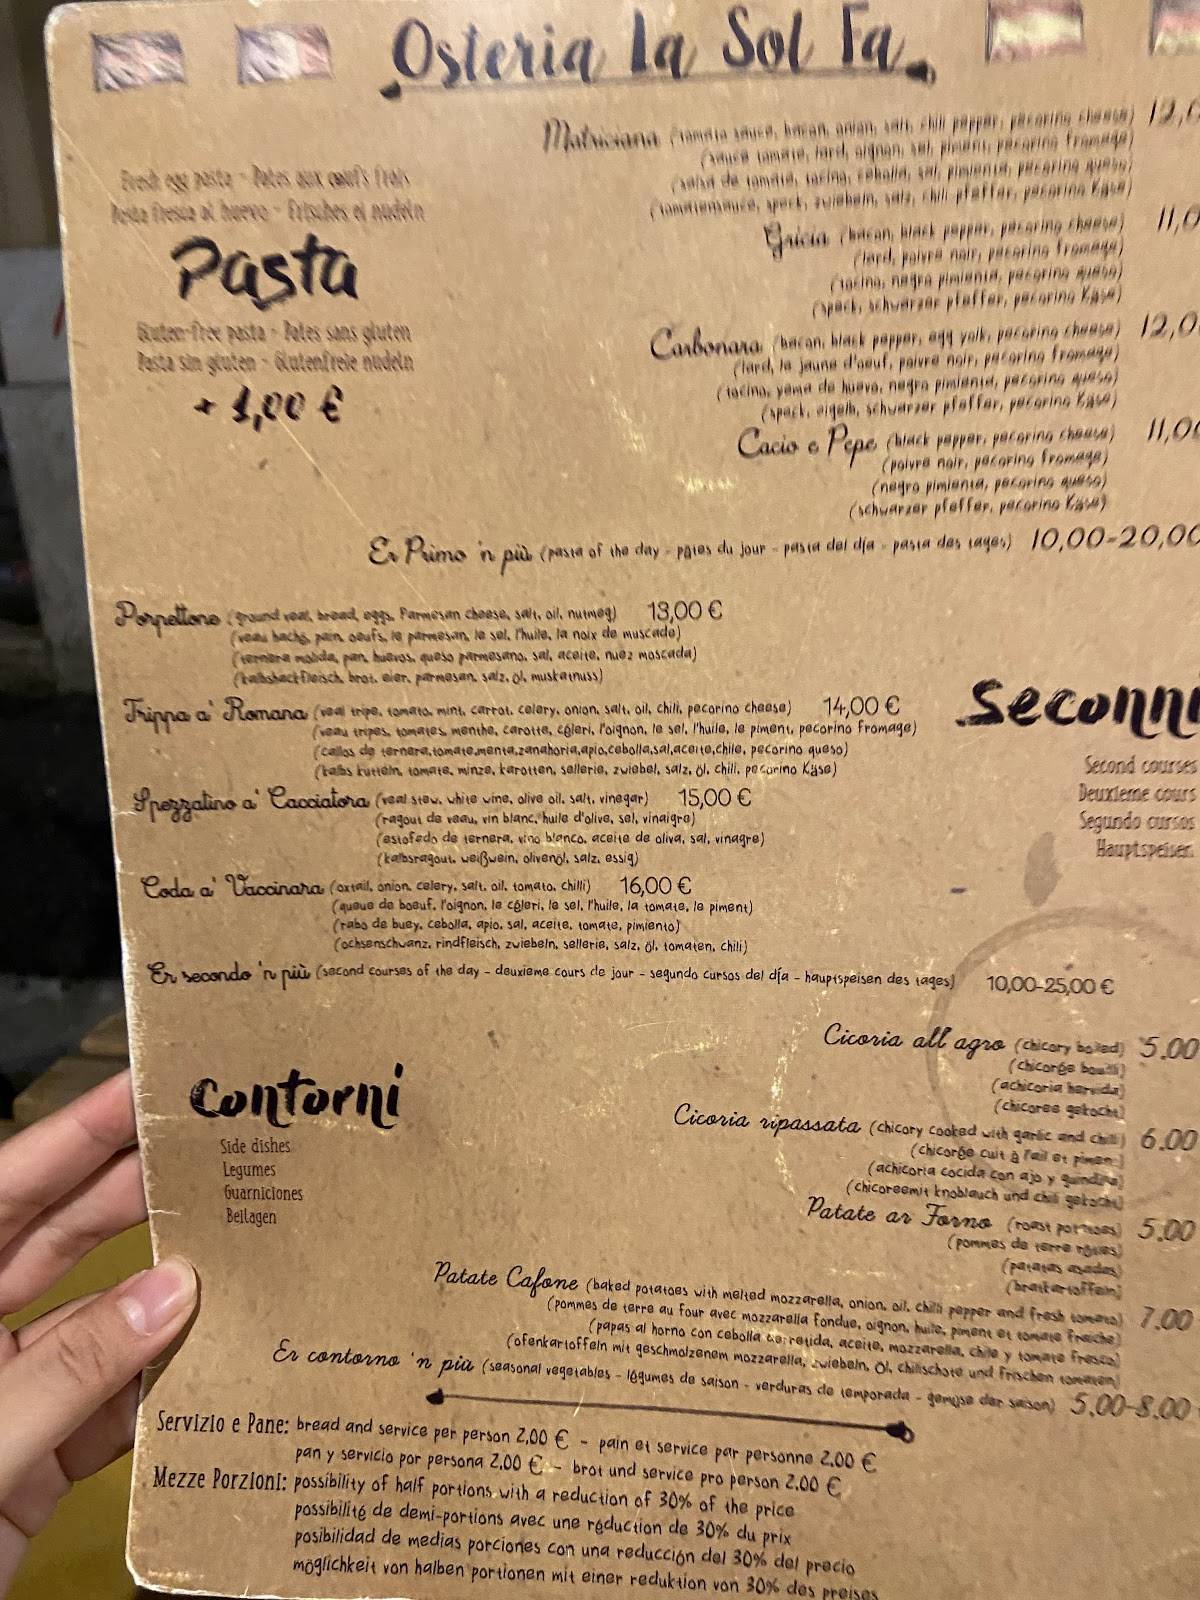 Osteria la Sol Fa
Fresh egg pasta - Pates aux oeufs frais
Pasta fresca al huevo - Frisches ei nudeln
Pasta
Gluten-free pasta - Pates sans gluten
Pasta sin gluten - Glutenfreie nudeln
+ 1,00 €
Matriciana (tomato sauce, bacon, onion, salt, chili pepper, pecorino cheese) 12,0
(sauce tomate, lard, oignon, sel, piment, pecorino fromage)
(salsa de tomate, tocino, cebolla, sal, pimienta, pecorino queso)
(tomatensauce, speck, zwiebeln, salz, chili pfeffer, pecorino Käse)
Gricia (bacon, black pepper, pecorino cheese) 11,0
(lard, poivre noir, pecorino fromage)
(tocino, negra pimienta, pecorino queso)
(speck, schwarzer pfeffer, pecorino Käse)
Carbonara (bacon, black pepper, egg yolk, pecorino cheese) 12,0
(lard, le jaune d'oeuf, poivre noir, pecorino fromage)
(tocino, yema de huevo, negra pimienta, pecorino queso)
(speck, eigelb, schwarzer pfeffer, pecorino Käse)
Cacio e Pepe (black pepper, pecorino cheese) 11,00
(poivre noir, pecorino fromage)
(negra pimienta, pecorino queso)
(schwarzer pfeffer, pecorino Käse)
Er Primo 'n più (pasta of the day - pâtes du jour - pasta del día - pasta des tages) 10,00-20,00
Porpettone (ground veal, bread, eggs, Parmesan cheese, salt, oil, nutmeg) 13,00 €
(veau haché, pain, oeufs, le parmesan, le sel, l'huile, la noix de muscade)
(ternera molida, pan, huevos, queso parmesano, sal, aceite, nuez moscada)
(kalbshackfleisch, brot, eier, parmesan, salz, öl, muskatnuss)
Seconni
Second courses
Deuxieme cours
Segundo cursos
Hauptspeisen
Trippa a' Romana (veal tripe, tomato, mint, carrot, celery, onion, salt, oil, chili, pecorino cheese) 14,00 €
(veau tripes, tomates, menthe, carotte, céleri, l'oignon, le sel, l'huile, le piment, pecorino fromage)
(callos de ternera,tomate,menta,zanahoria,apio,cebolla,sal,aceite,chile, pecorino queso)
(kalbs kutteln, tomate, minze, karotten, sellerie, zwiebel, salz, öl, chili, pecorino Käse)
Spezzatino a' Cacciatora (veal stew, white wine, olive oil, salt, vinegar) 15,00 €
(ragout de veau, vin blanc, huile d'olive, sel, vinaigre)
(estofado de ternera, vino blanco, aceite de oliva, sal, vinagre)
(kalbsragout, weißwein, olivenöl, salz, essig)
Coda a' Vaccinara (oxtail, onion, celery, salt, oil, tomato, chilli) 16,00 €
(queue de boeuf, l'oignon, le céleri, le sel, l'huile, la tomate, le piment)
(rabo de buey, cebolla, apio, sal, aceite, tomate, pimiento)
(ochsenschwanz, rindfleisch, zwiebeln, sellerie, salz, öl, tomaten, chili)
Er secondo 'n più (second courses of the day - deuxieme cours de jour - segundo cursos del día - hauptspeisen des tages) 10,00-25,00 €
Contorni
Side dishes
Legumes
Guarniciones
Beilagen
Cicoria all'agro (chicory boiled) 5.00
(chicorée bouilli)
(achicoria hervida)
(chicoree gekocht)
Cicoria ripassata (chicory cooked with garlic and chili) 6.00
(chicorée cuit à l'ail et piment)
(achicoria cocida con ajo y guindilla)
(chicoreemit knoblauch und chili gekocht)
Patate ar Forno (roast portatoes) 5.00
(pommes de terre rôties)
(patatas asadas)
(bratkartoffeln)
Patate Cafone (baked potatoes with melted mozzarella, onion, oil, chilli pepper and fresh tomato) 7.00
(pommes de terre au four avec mozzarella fondue, oignon, huile, piment et tomate fraiche)
(papas al horno con cebolla derretida, aceite, mozzarella, chile y tomate fresco)
(ofenkartoffeln mit geschmolzenem mozzarella, zwiebeln, Öl, chilischote und frischen tomaten)
Er contorno 'n più (seasonal vegetables - légumes de saison - verduras de temporada - gemüse der saison) 5.00-8.00
Servizio e Pane: bread and service per person 2,00 € - pain et service par personne 2.00 €
pan y servicio por persona 2.00 € - brot und service pro person 2.00 €
Mezze Porzioni: possibility of half portions with a reduction of 30% of the price
possibilité de demi-portions avec une réduction de 30% du prix
posibilidad de medias porciones con una reducción del 30% del precio
möglichkeit von halben portionen mit einer reduktion von 30% des preises